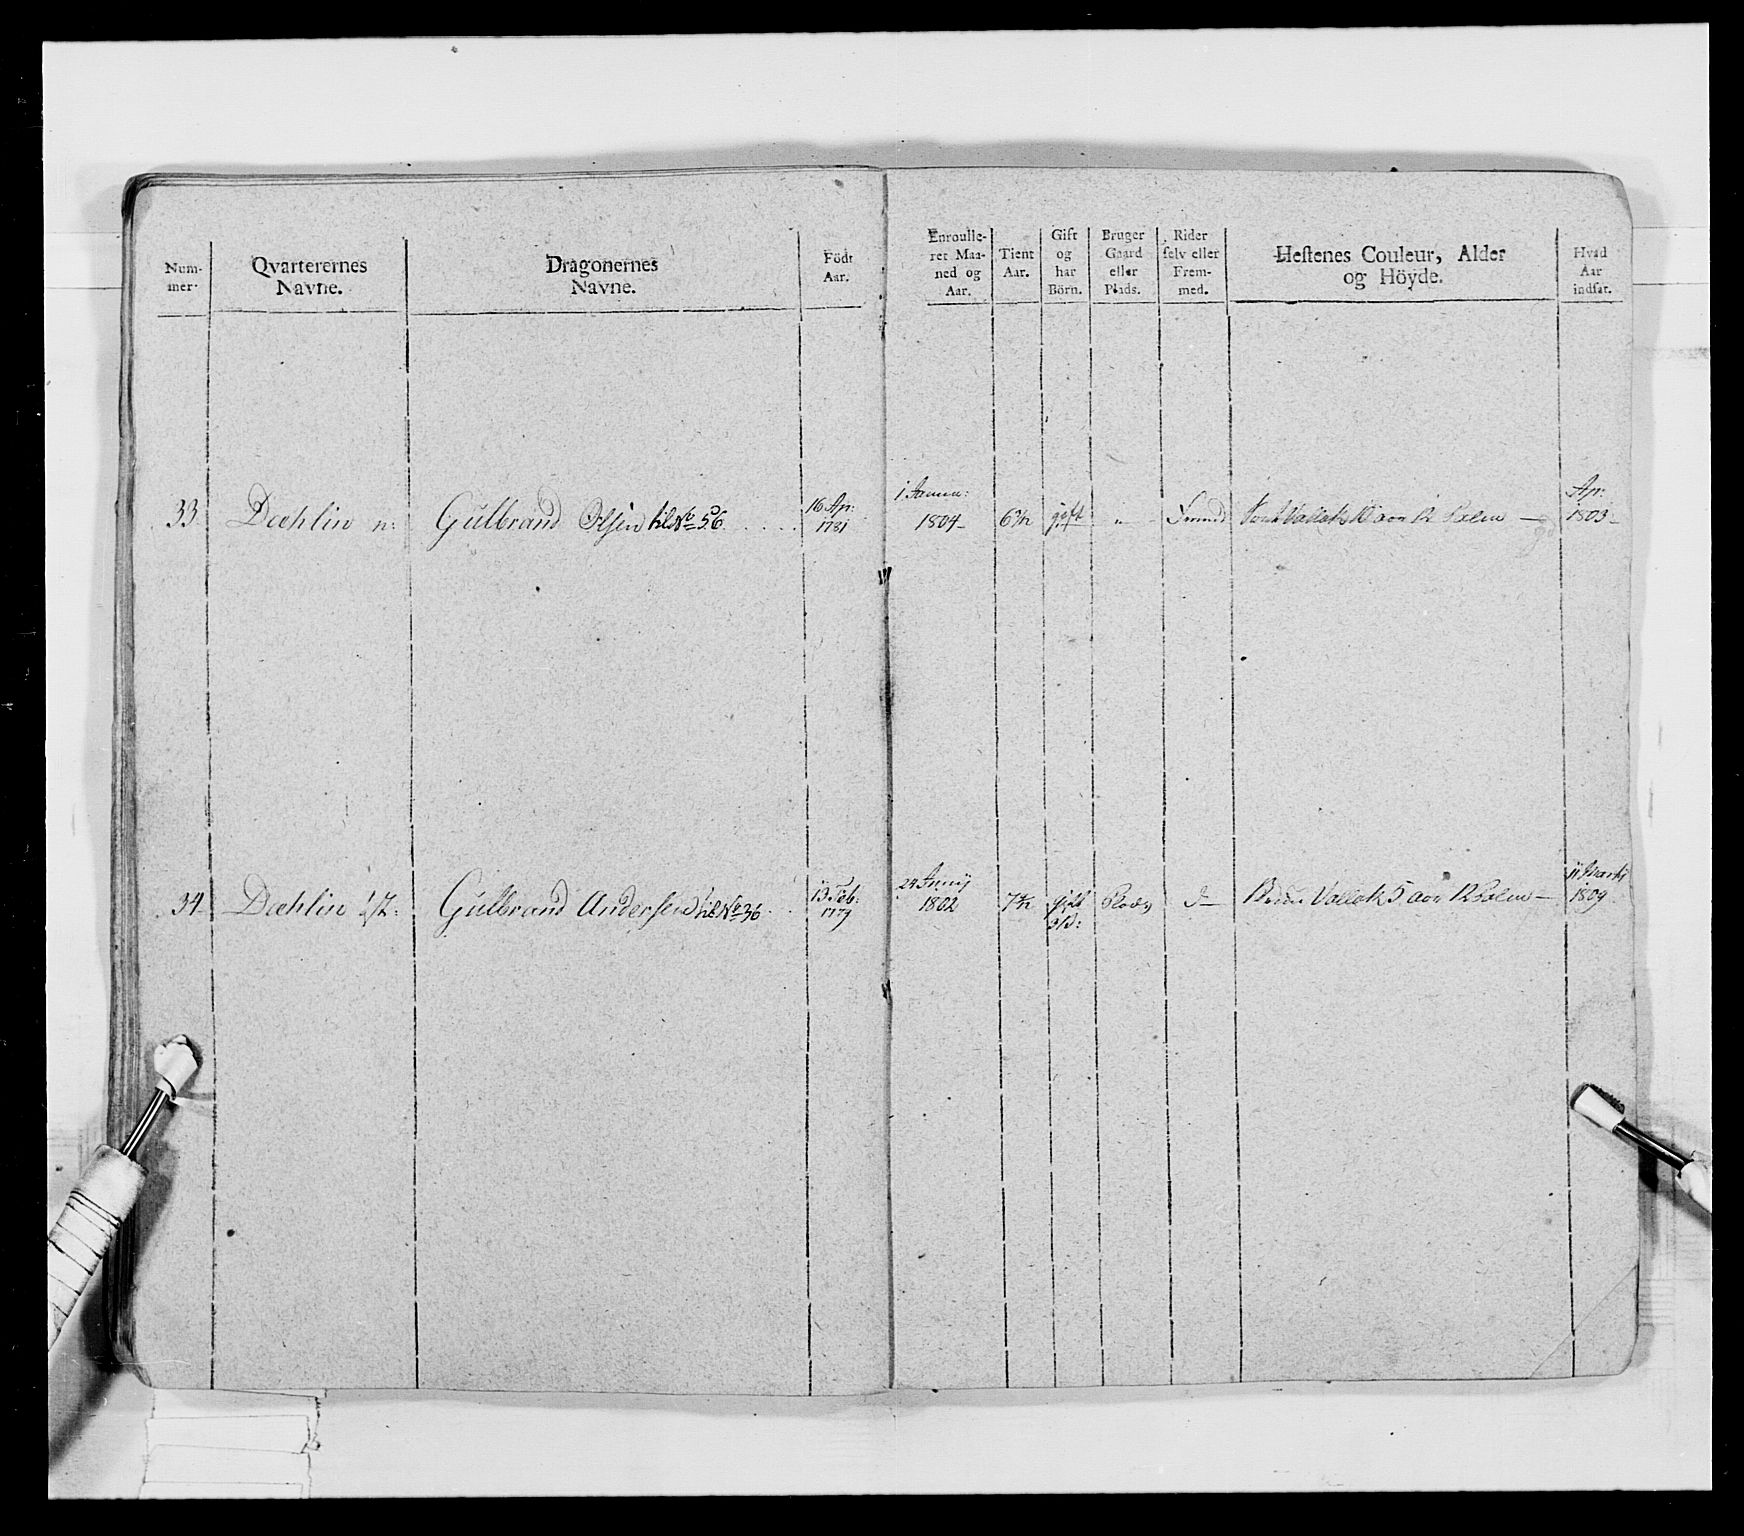 Num-
mer.
Qvarterernes
Navne.
Dragonernes
Navne.
Födt
Aar.
Enroulle-
ret Maa-
ned og
Aar.
Tient
Aar.
Gift
og
har
Börn.
Bruger
Gaard
eller
Plads.
Rider
selv eller
Frem-
med.
Hestenes Couleur, Alder
og Höyde.
Hvad
Aar
indsat.
33 Dæhlin n: Gülbrand Olsen til No 56 16 Ap: 1781 1 Janua: 1804 gift " 10 aar 12 Palm Apr: 1803
34 Dæhlin Gülbrand Andersen til No 36 13 Feb: 1779 24 Junij 1802 gift 3 B: Plads d Vallak 5 aar 12 Palm 11 Marti 1809